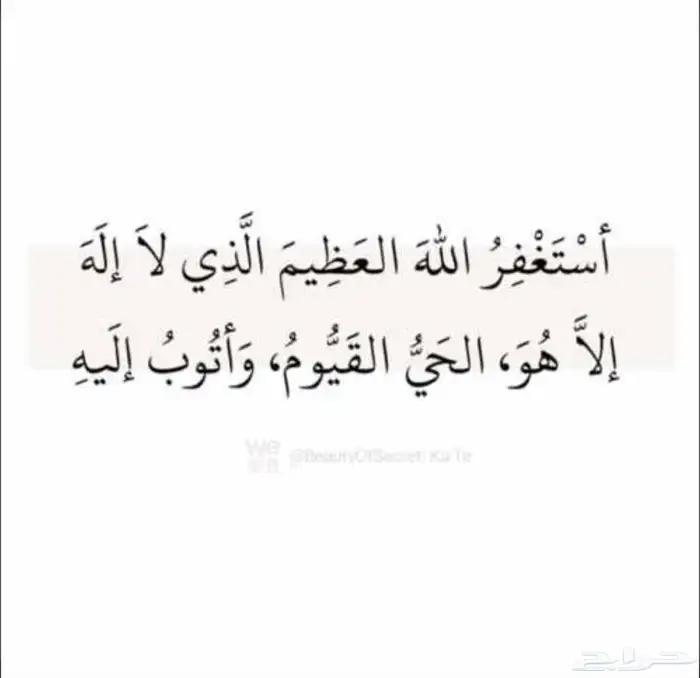 أسْتَغْفِرُ اللهَ العَظِيمَ الَّذِي لاَ إلَهَ
إلاَّ هُوَ، الحَيُّ القَيُّومُ، وَأتُوبُ إلَيهِ
We
@BeautyOfSecret
حراج